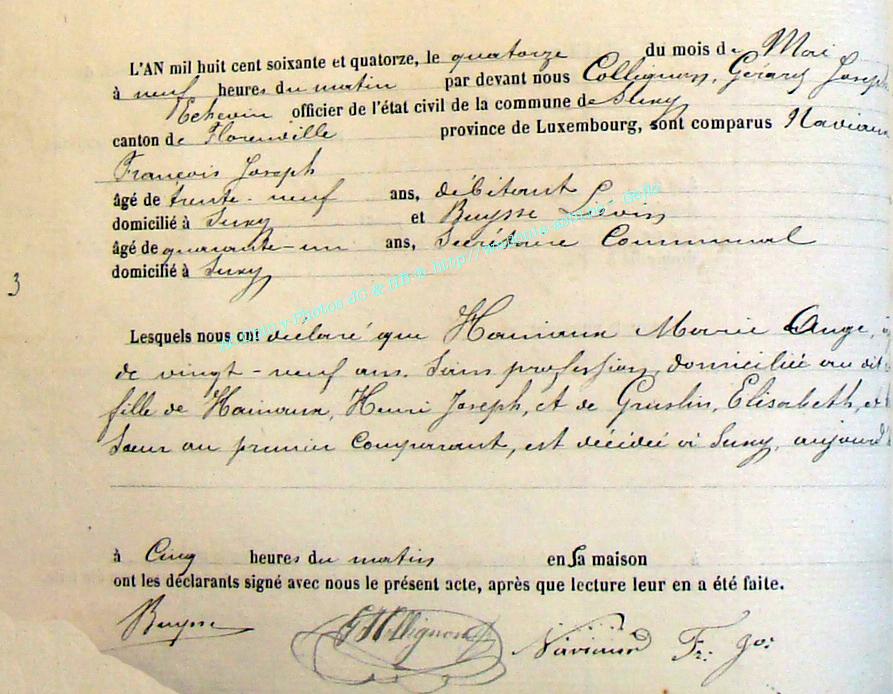 L'AN mil huit cent soixante et quatorze, le quatorze du mois de Mai
à neuf heures du matin par devant nous Collignon, Gérard Joseph
Echevin officier de l'état civil de la commune de Suxy
canton de Florenville province de Luxembourg, sont comparus
François Joseph
âgé de trente-neuf ans, débitant
domicilié à Suxy et Buysse
âgé de quarante-un ans, Secrétaire Communal
domicilié à Suxy
3
Lesquels nous ont déclaré que Hainaux Marie Ange,
de vingt-neuf ans. Sans profession, domiciliée au dit
fille de Hainaux, Henri Joseph, et de Elisabeth, et
Sœur au premier Comparant, est décédée à Suxy, aujourd
à Cinq heures du matin en Sa maison
ont les déclarants signé avec nous le présent acte, après que lecture leur en a été faite.
Buysse GJCollignon Fr: Jos: